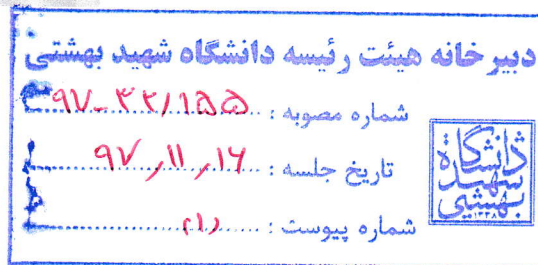 دبیرخانه هیئت رئیسه دانشگاه شهید بهشتی
شماره مصوبه : ۹۷-۳۲/۱۵۵
تاریخ جلسه : ۹۷,۱۱,۱۶
شماره پیوست : (۱)
دانشگاه
شهید
بهشتی
۱۳۳۸